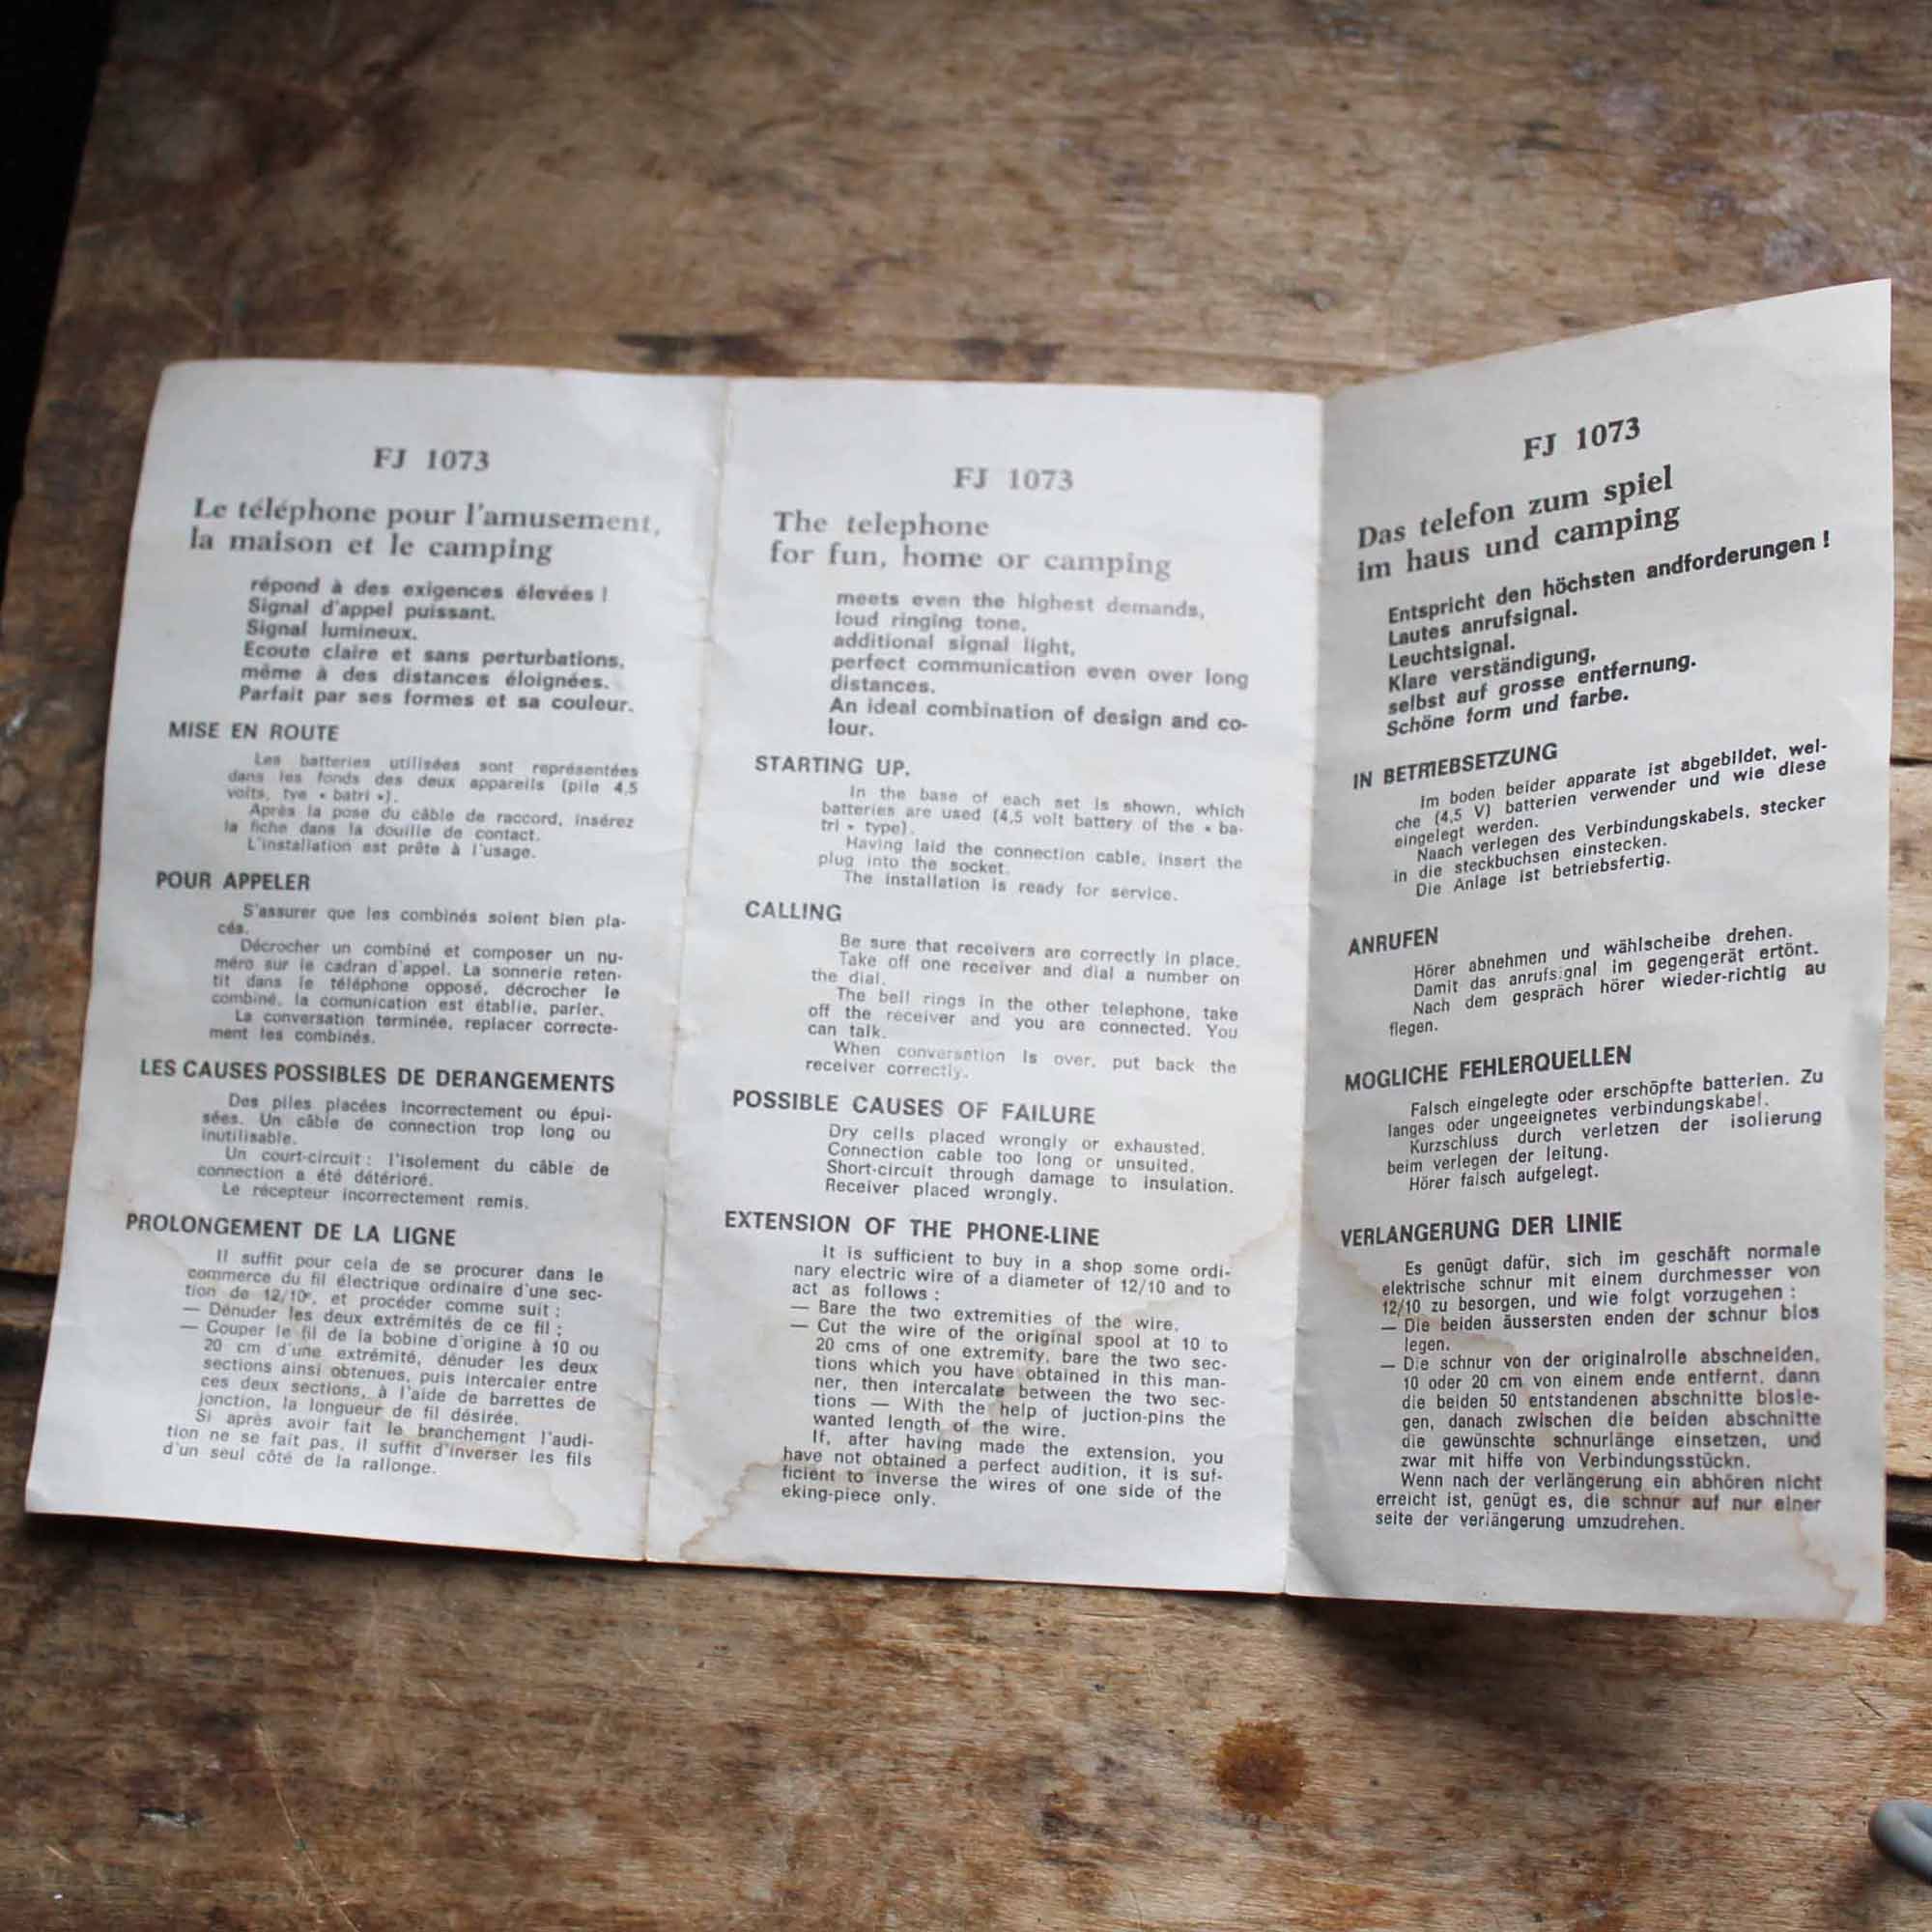 FJ 1073
Le téléphone pour l'amusement,
la maison et le camping
répond à des exigences élevées !
Signal d'appel puissant.
Signal lumineux.
Ecoute claire et sans perturbations,
même à des distances éloignées.
Parfait par ses formes et sa couleur.
MISE EN ROUTE
Les batteries utilisées sont représentées
dans les fonds des deux appareils (pile 4,5
volts, tye « batri »).
Après la pose du câble de raccord, insérez
la fiche dans la douille de contact.
L'installation est prête à l'usage.
POUR APPELER
S'assurer que les combinés soient bien pla-
cés.
Décrocher un combiné et composer un nu-
méro sur le cadran d'appel. La sonnerie reten-
tit dans le téléphone opposé, décrocher le
combiné, la comunication est établie, parler.
La conversation terminée, replacer correcte-
ment les combinés.
LES CAUSES POSSIBLES DE DERANGEMENTS
Des piles placées incorrectement ou épui-
sées. Un câble de connection trop long ou
inutilisable.
Un court-circuit : l'isolement du câble de
connection a été détérioré.
Le récepteur incorrectement remis.
PROLONGEMENT DE LA LIGNE
Il suffit pour cela de se procurer dans le
commerce du fil électrique ordinaire d'une sec-
tion de 12/10e, et procéder comme suit :
— Dénuder les deux extrémités de ce fil ;
— Couper le fil de la bobine d'origine à 10 ou
20 cm d'une extrémité, dénuder les deux
sections ainsi obtenues, puis intercaler entre
ces deux sections, à l'aide de barrettes de
jonction, la longueur de fil désirée.
Si après avoir fait le branchement l'audi-
tion ne se fait pas, il suffit d'inverser les fils
d'un seul côté de la rallonge.
FJ 1073
The telephone
for fun, home or camping
meets even the highest demands,
loud ringing tone,
additional signal light,
perfect communication even over long
distances.
An ideal combination of design and co-
lour.
STARTING UP.
In the base of each set is shown, which
batteries are used (4,5 volt battery of the « ba-
tri » type).
Having laid the connection cable, insert the
plug into the socket.
The installation is ready for service.
CALLING
Be sure that receivers are correctly in place.
Take off one receiver and dial a number on
the dial.
The bell rings in the other telephone, take
off the receiver and you are connected. You
can talk.
When conversation is over, put back the
receiver correctly.
POSSIBLE CAUSES OF FAILURE
Dry cells placed wrongly or exhausted.
Connection cable too long or unsuited.
Short-circuit through damage to insulation.
Receiver placed wrongly.
EXTENSION OF THE PHONE-LINE
It is sufficient to buy in a shop some ordi-
nary electric wire of a diameter of 12/10 and to
act as follows :
— Bare the two extremities of the wire.
— Cut the wire of the original spool at 10 to
20 cms of one extremity, bare the two sec-
tions which you have obtained in this man-
ner, then intercalate between the two sec-
tions — With the help of juction-pins the
wanted length of the wire.
If, after having made the extension, you
have not obtained a perfect audition, it is suf-
ficient to inverse the wires of one side of the
eking-piece only.
FJ 1073
Das telefon zum spiel
im haus und camping
Entspricht den höchsten andforderungen !
Lautes anrufsignal.
Leuchtsignal.
Klare verständigung,
selbst auf grosse entfernung.
Schöne form und farbe.
IN BETRIEBSETZUNG
Im boden beider apparate ist abgebildet, wel-
che (4,5 V) batterien verwender und wie diese
eingelegt werden.
Naach verlegen des Verbindungskabels, stecker
in die steckbuchsen einstecken.
Die Anlage ist betriebsfertig.
ANRUFEN
Hörer abnehmen und wählscheibe drehen.
Damit das anrufsignal im gegengerät ertönt.
Nach dem gespräch hörer wieder-richtig au
flegen.
MOGLICHE FEHLERQUELLEN
Falsch eingelegte oder erschöpfte batterien. Zu
langes oder ungeeignetes verbindungskabel.
Kurzschluss durch verletzen der isolierung
beim verlegen der leitung.
Hörer falsch aufgelegt.
VERLANGERUNG DER LINIE
Es genügt dafür, sich im geschäft normale
elektrische schnur mit einem durchmesser von
12/10 zu besorgen, und wie folgt vorzugehen :
— Die beiden äussersten enden der schnur blos
legen.
— Die schnur von der originalrolle abschneiden,
10 oder 20 cm von einem ende entfernt, dann
die beiden 50 entstandenen abschnitte blosle-
gen, danach zwischen die beiden abschnitte
die gewünschte schnurlänge einsetzen, und
zwar mit hiffe von Verbindungsstückn.
Wenn nach der verlängerung ein abhören nicht
erreicht ist, genügt es, die schnur auf nur einer
seite der verlängerung umzudrehen.